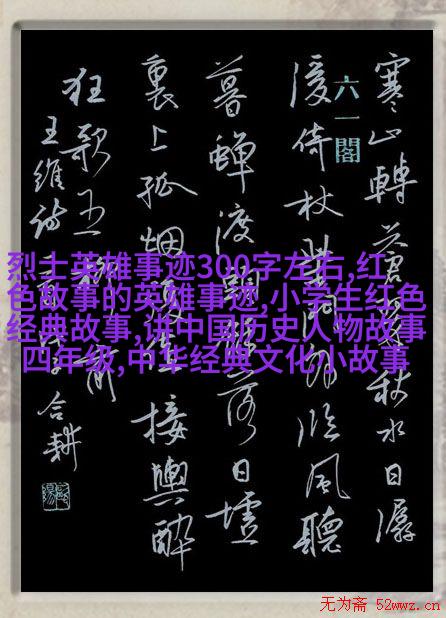 寒山轉蒼翠秋水日潺
六一閣
湲倚杖柴門外临風聽
暮蟬渡頭餘落日墟
裏上孤烟復值接輿醉
狂歌五柳前
王維詩 合耕
烈士英雄事迹300字左右,红
色故事的英雄事迹,小学生红色
经典故事,讲中国历史人物故事
四年级,中华经典文化小故事
无为斋 52wwz.cn